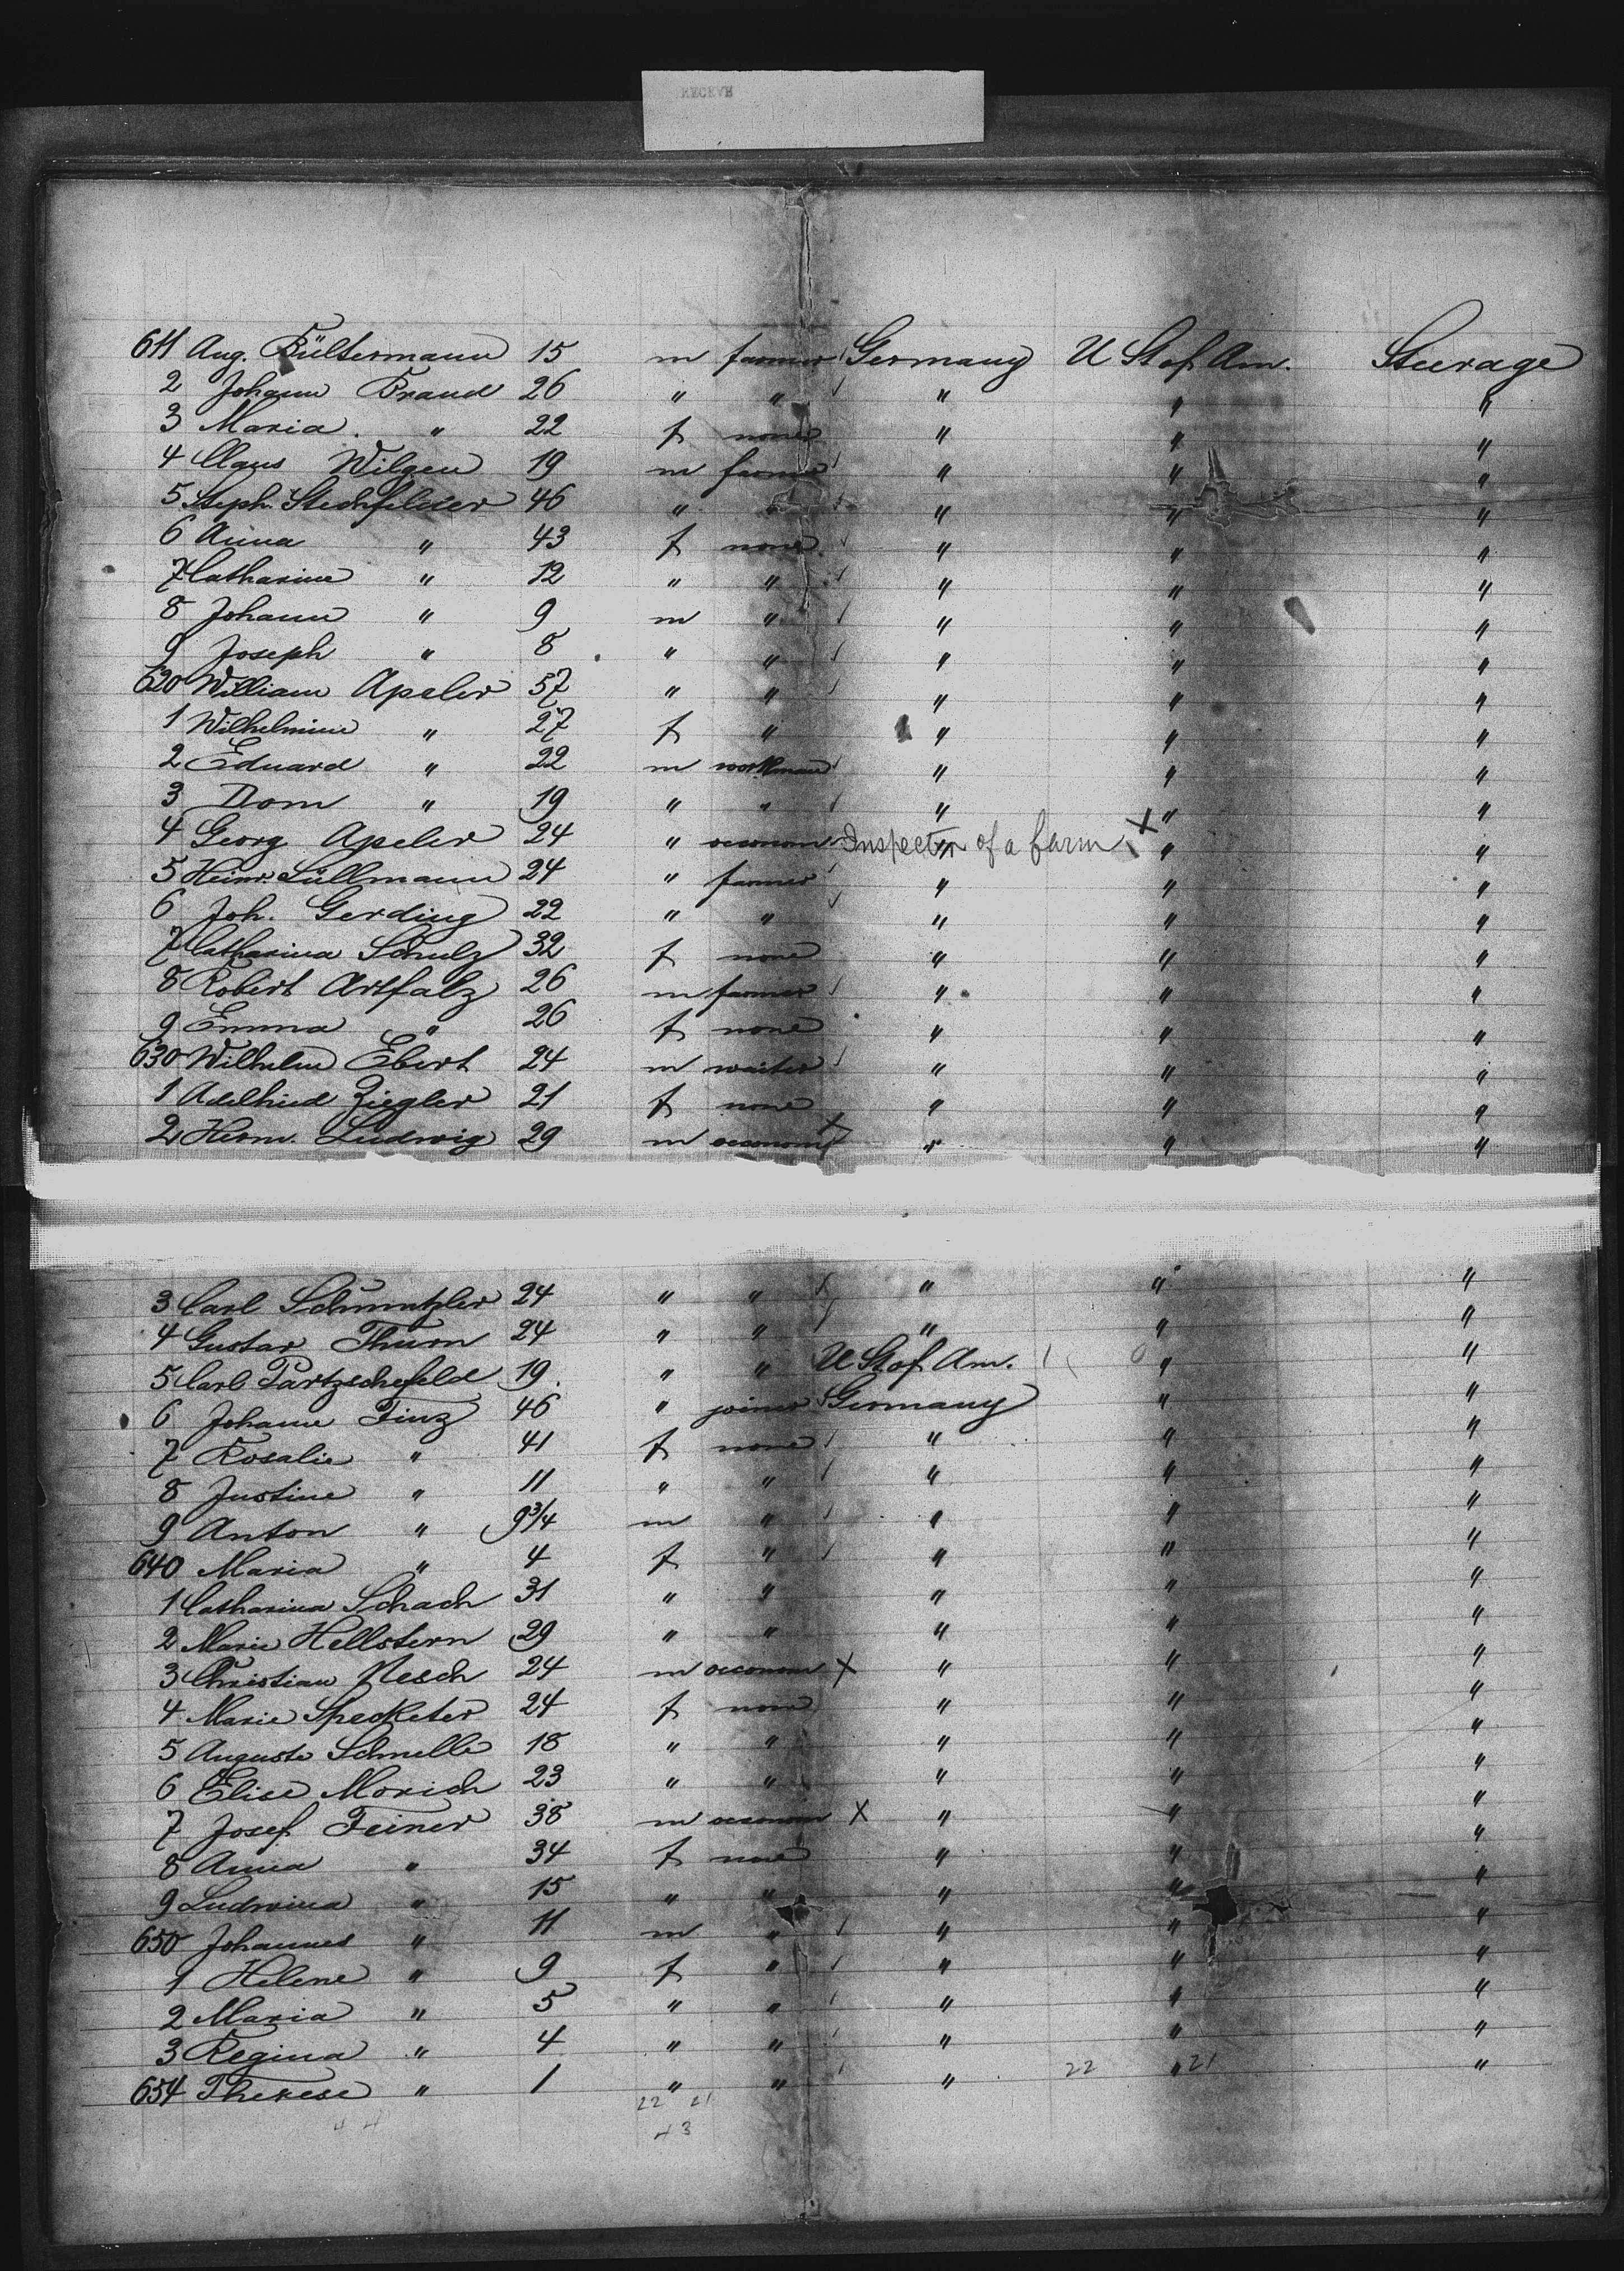 611 Aug. Bültermann 15 m farmer Germany U St of Am. Steerage
2 Johann Brand 26 " " " " "
3 Maria " 22 f none " " "
4 Claus Wilgen 19 m farmer " " "
5 Steph. Stechfelder 46 " " " " "
6 Anna " 43 f none " " "
7 Catharine " 12 " " " " "
8 Johann " 9 m " " " "
9 Joseph " 8 " " " " "
620 William Apeler 57 " " " " "
1 Wilhelmine " 27 f " " " "
2 Eduard " 22 m workman " " "
3 Dom " 19 " " " " "
4 Georg Apeler 24 " oeconom Inspector of a farm X " " "
5 Heinr. Lüllmann 24 " farmer " " "
6 Joh. Gerding 22 " " " " "
7 Catharina Schulz 32 f none " " "
8 Robert Artfalz 26 m farmer " " "
9 Emma " 26 f none " " "
630 Wilhelm Ebert 24 m waiter " " "
1 Adelheid Ziegler 21 f none " " "
2 Herm. Ludwig 29 m oeconom X " " "
3 Carl Schmutzler 24 " " " " "
4 Gustav Thurn 24 " " " " "
5 Carl Partzschefeld 19 " " U St of Am. " "
6 Johann Finz 46 " joiner Germany " "
7 Rosalie " 41 f none " " "
8 Justine " 11 " " " " "
9 Anton " 9 3/4 m " " " "
640 Maria " 4 f " " " "
1 Catharina Schach 31 " " " " "
2 Marie Hellstern 29 " " " " "
3 Christian Nesch 24 m oeconom X " " "
4 Marie Specketer 24 f none " " "
5 Auguste Schnelle 18 " " " " "
6 Elise Morich 23 " " " " "
7 Josef Feiner 38 m oeconom X " " "
8 Anna " 34 f none " " "
9 Ludwina " 15 " " " " "
650 Johannes " 11 m " " " "
1 Helene " 9 f " " " "
2 Maria " 5 " " " " "
3 Regina " 4 " " " " "
654 Therese " 1 " " " 22 " 21 "
22 21
44 43